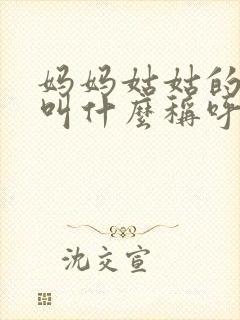 妈妈姑姑的
叫什麼稱呼
沈交宣